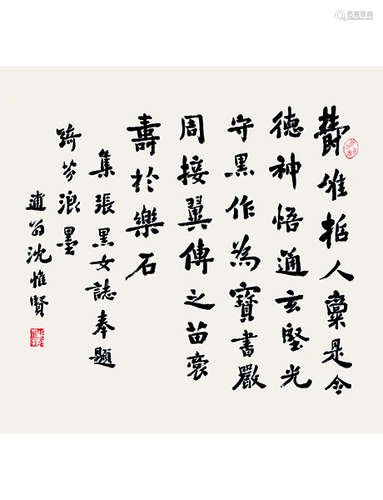 惟哲人稟是令
德神悟通玄堅光
守黑作為寶書嚴
周接翼傳之苗裔
壽於樂石
集張黑女誌奉題
芬浪墨
遁翁沈惟賢